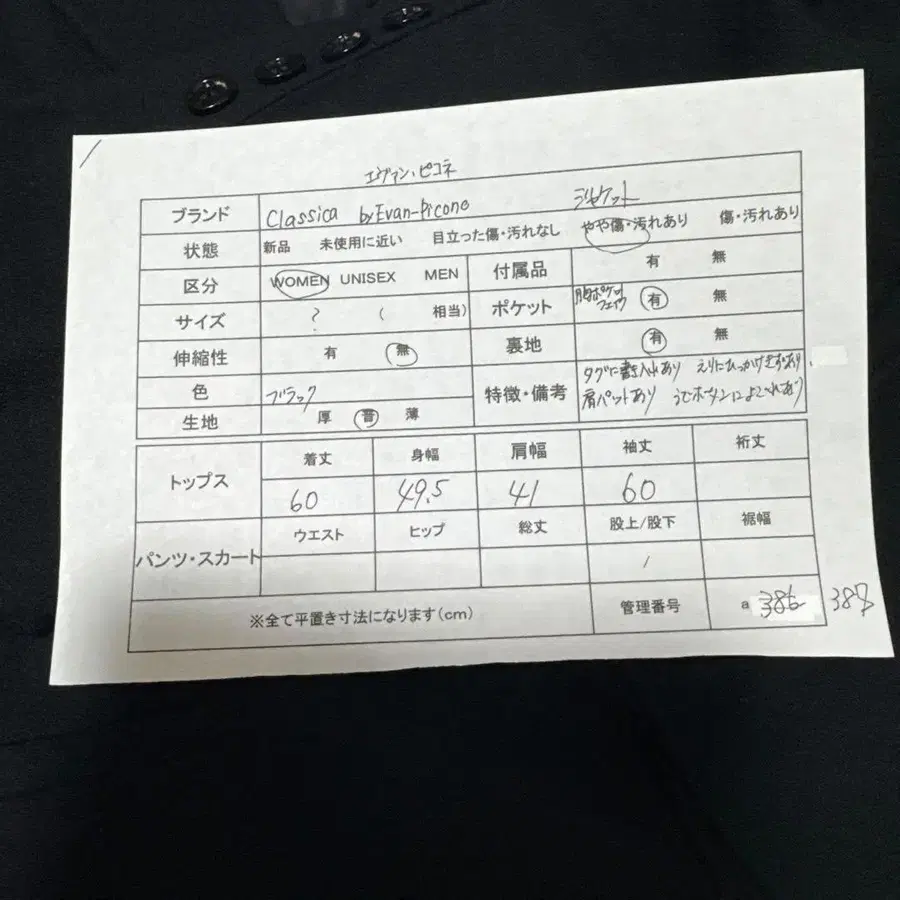 エヴァン・ピコネ
ブランド Classica by Evan-Picone ジャケット
状態 新品 未使用に近い 目立った傷・汚れなし やや傷・汚れあり 傷・汚れあり
区分 WOMEN UNISEX MEN 付属品 有 無
サイズ ? ( 相当) ポケット 胸ポケット フェイク 有 無
伸縮性 有 無 裏地 有 無
色 ブラック 特徴・備考 タグに書き入れあり えりにひっかけきずあり、
肩パットあり うでボタンによごれあり
生地 厚 普 薄
トップス 着丈 身幅 肩幅 袖丈 裄丈
60 49.5 41 60
パンツ・スカート ウエスト ヒップ 総丈 股上/股下 裾幅
/
※全て平置き寸法になります(cm) 管理番号 a 386 387